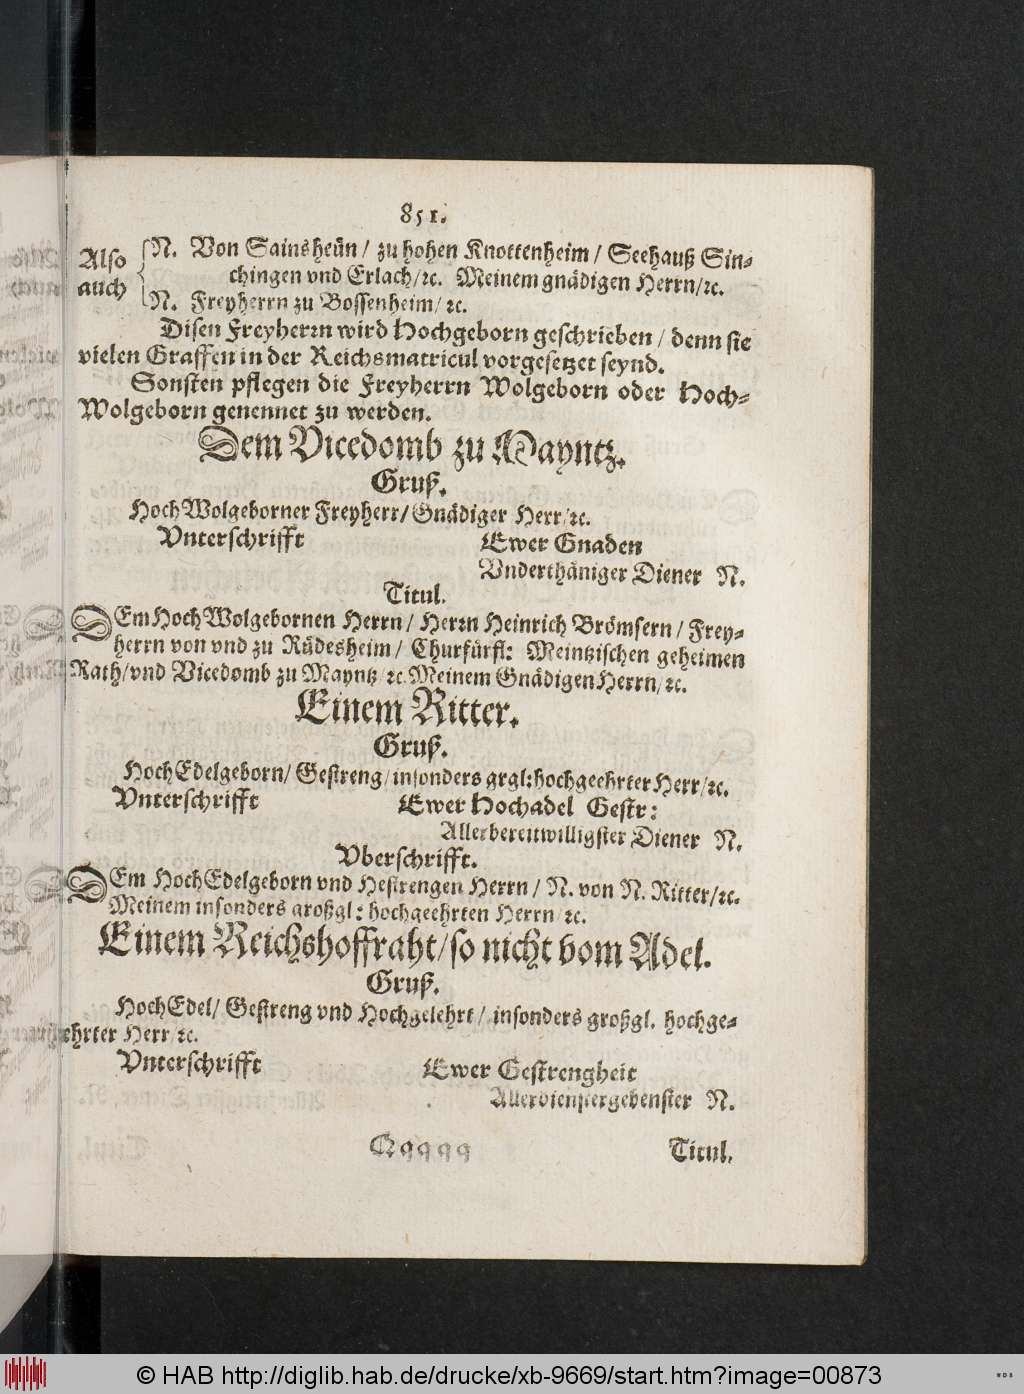 851.
Also auch
N. Von Sainsheün / zu hohen Knottenheim / Seehauß Sin-
chingen vnd Erlach/ꝛc. Meinem gnädigen Herrn/ꝛc.
N. Freyherrn zu Bossenheim/ ꝛc.
Disen Freyherrn wird Hochgeborn geschrieben / denn sie
vielen Graffen in der Reichsmatricul vorgesetzet seynd.
Sonsten pflegen die Freyherrn Wolgeborn oder Hoch-
Wolgeborn genennet zu werden.
Dem Vicedomb zu Mayntz.
Gruß.
HochWolgeborner Freyherr/ Gnädiger Herr/ꝛc.
Vnterschrifft Ewer Gnaden
Vnderthäniger Diener N.
Titul.
DEm HochWolgebornen Herrn / Herrn Heinrich Brömsern / Frey-
herrn von vnd zu Rüdesheim / Churfürstl: Meintzischen geheimen
Rath/vnd Vicedomb zu Mayntz/ꝛc. Meinem Gnädigen Herrn/ꝛc.
Einem Ritter.
Gruß.
HochEdelgeborn/ Gestreng/insonders grgl:hochgeehrter Herr/ꝛc.
Vnterschrifft Ewer Hochadel Gestr:
Allerbereitwilligster Diener N.
Vberschrifft.
DEm HochEdelgeborn vnd Hestrengen Herrn / N. von N. Ritter/ꝛc.
Meinem insonders großgl: hochgeehrten Herrn/ ꝛc.
Einem Reichshoffraht/so nicht vom Adel.
Gruß.
HochEdel/ Gestreng vnd Hochgelehrt / insonders großgl. hochge-
ehrter Herr/ꝛc.
Vnterschrifft Ewer Gestrengheit
Allerdienstergebenster N.
Qqqqq Titul.
© HAB http://diglib.hab.de/drucke/xb-9669/start.htm?image=00873